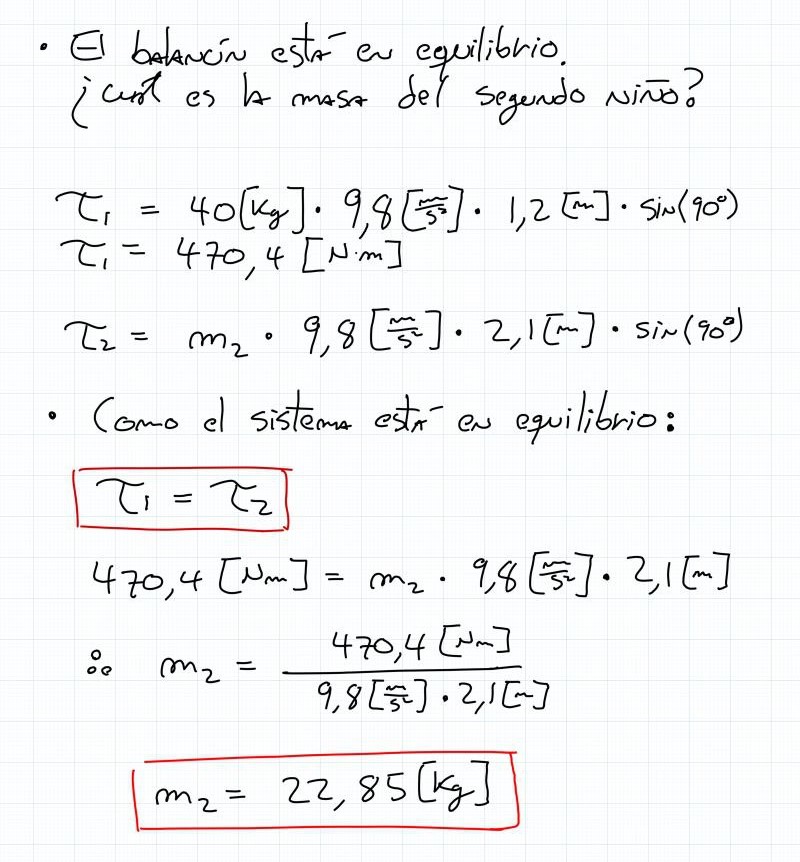 • El balancín está en equilibrio.
¿cuál es la masa del segundo niño?
τ₁ = 40[kg] · 9,8[m/s²] · 1,2[m] · sin(90°)
τ₁ = 470,4 [N·m]
τ₂ = m₂ · 9,8[m/s²] · 2,1[m] · sin(90°)
• Como el sistema está en equilibrio:
τ₁ = τ₂
470,4 [Nm] = m₂ · 9,8[m/s²] · 2,1[m]
∴ m₂ = 470,4 [Nm] / 9,8[m/s²] · 2,1[m]
m₂ = 22,85[kg]